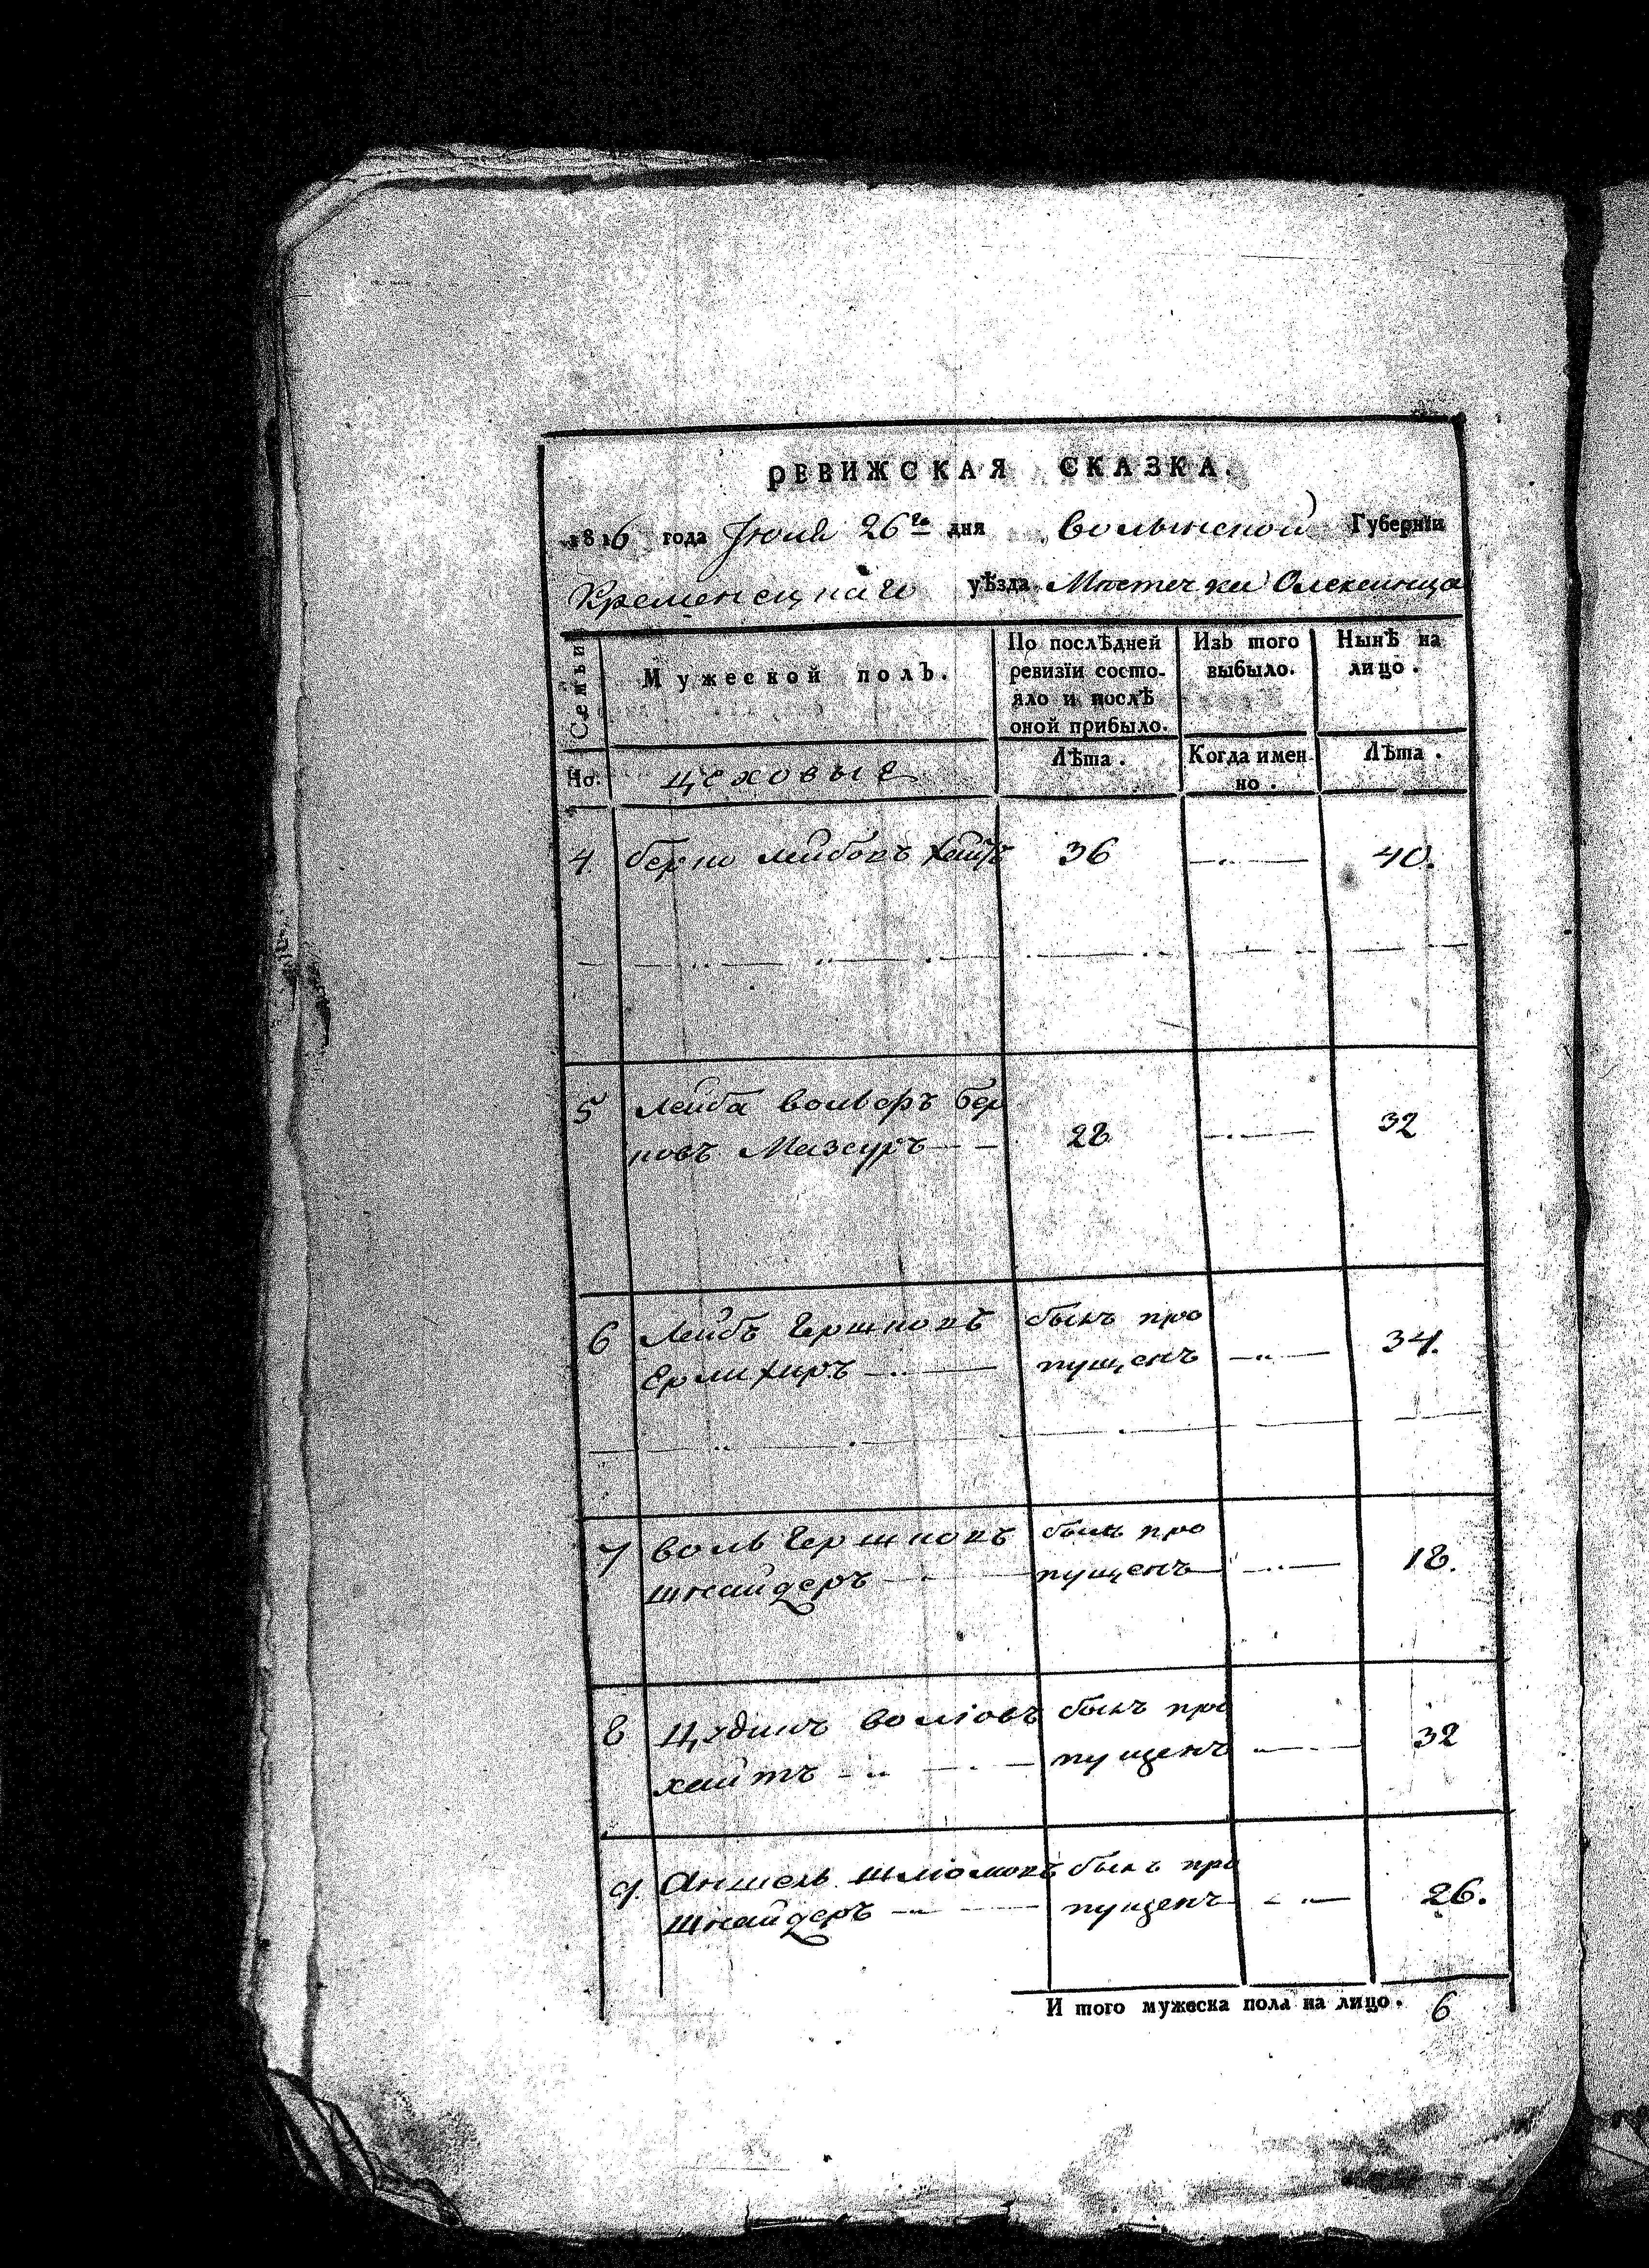 РЕВИЖСКАЯ СКАЗКА.
1816 года Іюля 26го дня Волынской Губерніи
Кременецкаго уѣзда Мѣстечка Олексинца
Семьи
Мужеской полъ.
По послѣдней
ревизіи состо-
яло и послѣ
оной прибыло.
Изъ того
выбыло.
Нынѣ на
лицо.
Но. цеховые Лѣта. Когда имен-
но.
Лѣта.
4 берко лейбовъ хайтъ 36 40.
5 лейба вольфъ бер
ковъ Мазуръ 28 32
6 Лейбъ Гершковъ былъ про
Ерлихиръ пущенъ 34.
7 воль Гершковъ былъ про
шнайдеръ пущенъ 18.
8 волковъ былъ про
хайтъ пущенъ 32
9. Аншель шлiомовъ былъ про
шнайдеръ пущенъ 26.
И того мужеска пола на лицо. 6